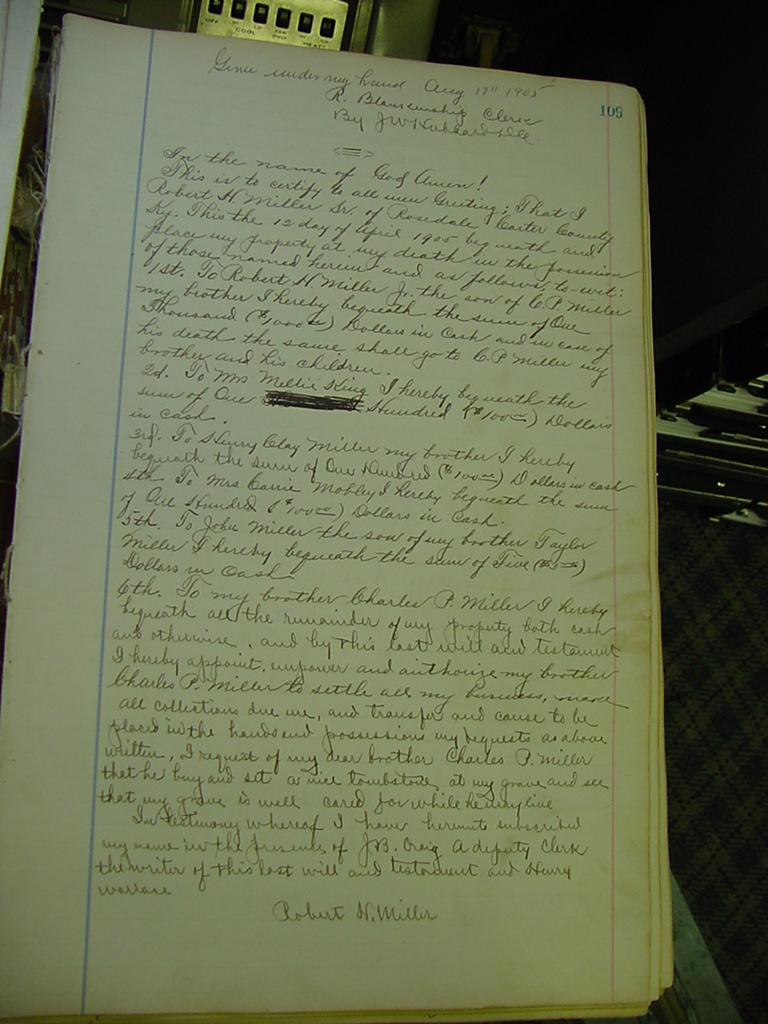 OFF
COOL
FAN ONLY
HEAT
109
Given under my hand Aug 17" 1905
R. Blankenship Clerk
By JW Hubbard D.C.
In the name of God Amen!
This is to certify to all men Greeting; That I
Robert H Miller Sr. of Rosedale Carter County
Ky. This the 12 day of April 1905 bequeath and
place my property at my death in the possession
of those named herein and as follows, to-wit:
1st. To Robert H Miller Jr. the son of C.P. Miller
my brother I hereby bequeath the sum of One
Thousand ($1000 00) Dollars in Cash and in case of
his death the same shall go to C.P. Miller my
brother and his children.
2d. To Mrs Mellie King I hereby bequeath the
sum of One Hundred ($100 00) Dollars
in cash.
3rd. To Henry Clay Miller my brother I hereby
bequeath the sum of One Hundred ($100 00) Dollars in cash
4th To Mrs Carrie Mobley I hereby bequeath the sum
of One Hundred ($100 00) Dollars in Cash.
5th. To John Miller the son of my brother Taylor
Miller I hereby bequeath the sum of Five
Dollars in Cash.
6th. To my brother Charles P. Miller I hereby
bequeath all the remainder of my property both cash
and otherwise, and by this last will and testament
I hereby appoint, empower and authorize my brother
Charles P. Miller to settle all my business, make
all collections due me, and transfer and cause to be
placed in the hands and possessions my bequests as above
written, I request of my dear brother Charles P. Miller
that he buy and set a nice tombstone at my grave and see
that my grave is well cared for while he may live
In testimony whereof I have hereunto subscribed
my name in the presence of J.B. Craig a deputy Clerk
the writer of this last will and testament and Henry
Robert H. Miller